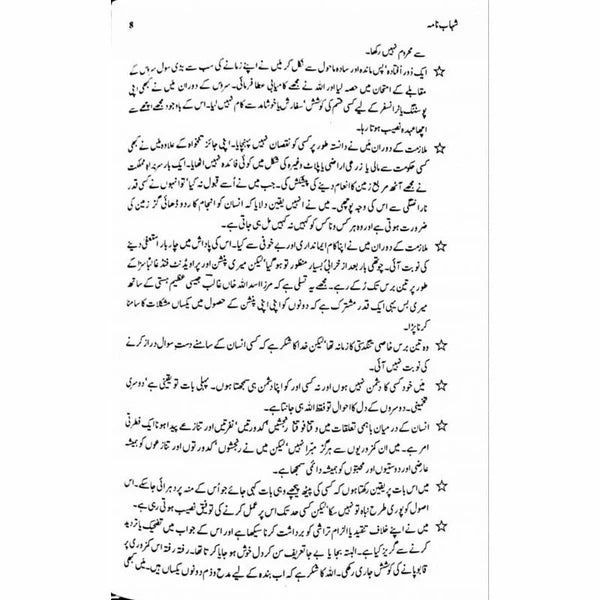 شہاب نامہ 8
سے محروم نہیں رکھا۔
☆ ایک دور اُفتادہ، پس ماندہ اور سادہ ماحول سے نکل کر میں نے اپنے زمانے کی سب سے بڑی سول سروس کے
مقابلے کے امتحان میں حصہ لیا اور اللہ نے مجھے کامیابی عطا فرمائی۔ سروس کے دوران میں نے کبھی اپنی
پوسٹنگ یا ٹرانسفر کے لیے کسی قسم کی کوشش، سفارش یا خوشامد سے کام نہیں لیا۔ اس کے باوجود مجھے اچھے سے
اچھا عہدہ نصیب ہوتا رہا۔
☆ ملازمت کے دوران میں نے دانستہ طور پر کسی کو نقصان نہیں پہنچایا۔ اپنی جائز تنخواہ کے علاوہ میں نے کبھی
کسی حکومت سے مالی یا زرعی اراضی یا پلاٹ وغیرہ کی شکل میں کوئی فائدہ نہیں اٹھایا۔ ایک بار سربراہِ مملکت
نے مجھے آٹھ مربع زمین کا انعام دینے کی پیشکش کی۔ جب میں نے اُسے قبول نہ کیا، تو انہوں نے کسی قدر
ناراضگی سے اس کی وجہ پوچھی۔ میں نے انہیں یقین دلایا کہ انسان کو انجام کار دو ڈھائی گز زمین کی
ضرورت ہوتی ہے اور وہ ہر کس و ناکس کو کہیں نہ کہیں مل ہی جاتی ہے۔
☆ ملازمت کے دوران میں نے اپنا کام ایمانداری اور بے خوفی سے کیا۔ اس کی پاداش میں چار بار استعفیٰ دینے
کی نوبت آئی۔ چوتھی بار بعد از خرابئ بسیار منظور تو ہو گیا، لیکن میری پنشن اور پراویڈنٹ فنڈ غالباً سزا کے
طور پر تین برس تک رُکے رہے۔ مجھے یہ تسلی ہے کہ مرزا اسد اللہ خاں غالب جیسی عظیم ہستی کے ساتھ
میری بس یہی ایک قدر مشترک ہے کہ دونوں کو اپنی اپنی پنشن کے حصول میں یکساں مشکلات کا سامنا
کرنا پڑا۔
☆ وہ تین برس خاصی تنگدستی کا زمانہ تھا، لیکن خدا کا شکر ہے کہ کسی انسان کے سامنے دستِ سوال دراز کرنے
کی نوبت نہیں آئی۔
☆ میں خود کسی کا دشمن نہیں ہوں اور نہ کسی اور کو اپنا دشمن ہی سمجھتا ہوں۔ پہلی بات تو یقینی ہے، دوسری
تخمینی۔ دوسروں کے دل کا احوال تو فقط اللہ ہی جانتا ہے۔
☆ انسان کے درمیان باہمی تعلقات میں وقتاً فوقتاً رنجشیں، کدورتیں، نفرتیں اور تنازعے پیدا ہونا ایک فطرتی
امر ہے۔ میں ان کمزوریوں سے ہرگز مبرّا نہیں، لیکن میں نے رنجشوں، کدورتوں اور تنازعوں کو ہمیشہ
عارضی اور دوستیوں اور محبتوں کو ہمیشہ دائمی سمجھا ہے۔
☆ میں اس بات پر یقین رکھتا ہوں کہ کسی کی پیٹھ پیچھے وہی بات کہی جائے جو اُس کے منہ پر دہرائی جا سکے۔ اس
اصول کو پوری طرح نباہ تو نہیں سکا، لیکن کسی حد تک اس پر عمل کرنے کی توفیق نصیب ہوتی رہی ہے۔
☆ میں نے اپنے خلاف تنقید یا الزام تراشی کو برداشت کرنا سیکھا ہے اور اس کے جواب میں تضحیک یا تردید
کرنے سے گریز کیا ہے۔ البتہ بجا یا بے جا تعریف سن کر دل خوش ہو جایا کرتا تھا۔ رفتہ رفتہ اس کمزوری پر
قابو پانے کی کوشش جاری رکھی۔ اللہ کا شکر ہے کہ اب بندہ کے لیے مدح و ذم دونوں یکساں ہیں۔ میں کبھی